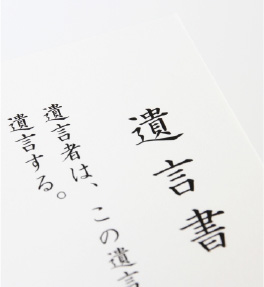 遺言書
遺言者は、この遺言
遺言する。